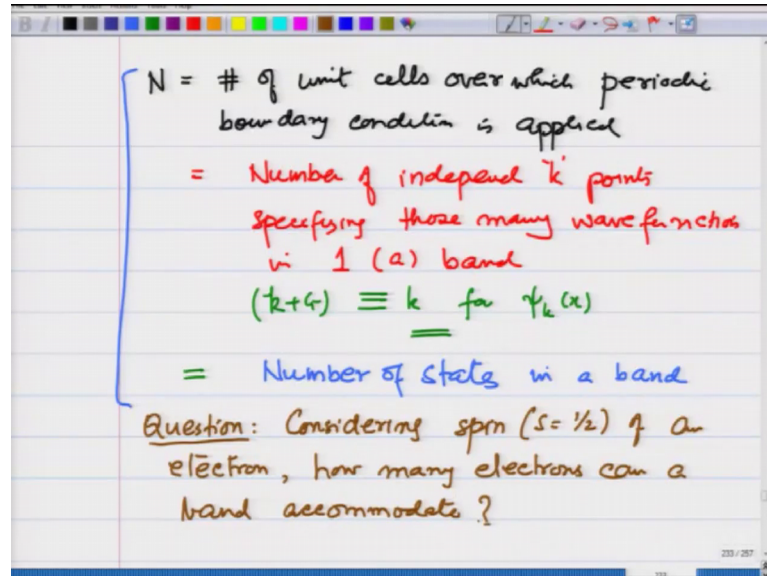 N = # of unit cells over which periodic
boundary condition is applied
= Number of independ 'k' points
specifying those many wavefunction
in 1 (a) band
(k+G) ≡ k for ψₖ(x)
= Number of states in a band
Question: Considering spin (S= ½) of an
electron, how many electrons can a
band accommodate?
233 / 257